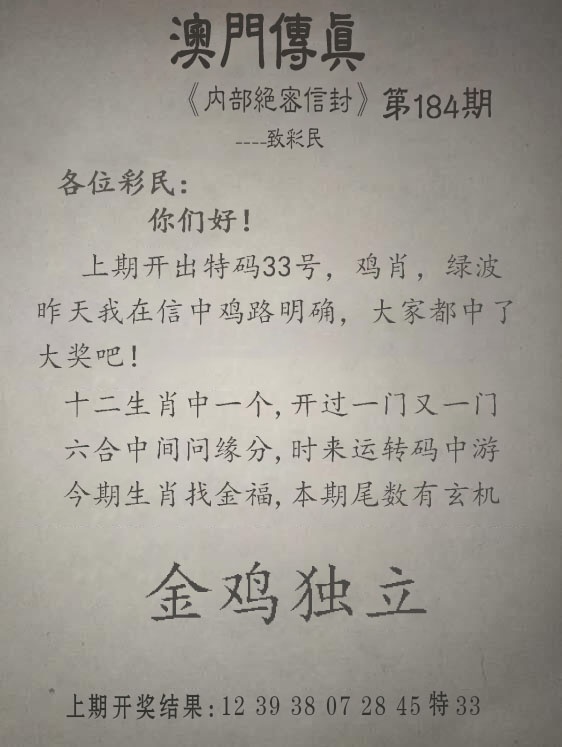 澳門傳真
《内部絕密信封》第184期
----致彩民
各位彩民：
你们好！
上期开出特码33号，鸡肖，绿波
昨天我在信中鸡路明确，大家都中了
大奖吧！
十二生肖中一个,开过一门又一门
六合中间问缘分,时来运转码中游
今期生肖找金福,本期尾数有玄机
金鸡独立
上期开奖结果:12 39 38 07 28 45 特 33